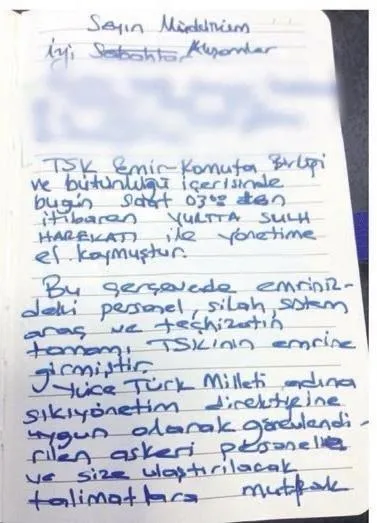 Sayın Müdürüm
İyi Sabahlar Akşamlar
TSK Emir-Komuta Birliği
ve bütünlüğü içerisinde
bugün saat 03⁰⁰ den
itibaren YURTTA SULH
HAREKATI ile yönetime
el koymuştur.
Bu çerçevede emriniz-
deki personel, silah, sistem
araç ve teçhizatın
tamamı TSK'nın emrine
girmiştir.
Yüce Türk Milleti adına
sıkıyönetim direktifine
uygun olarak görevlendi-
rilen askeri personele
ve size ulaştırılacak
talimatlara mutlak